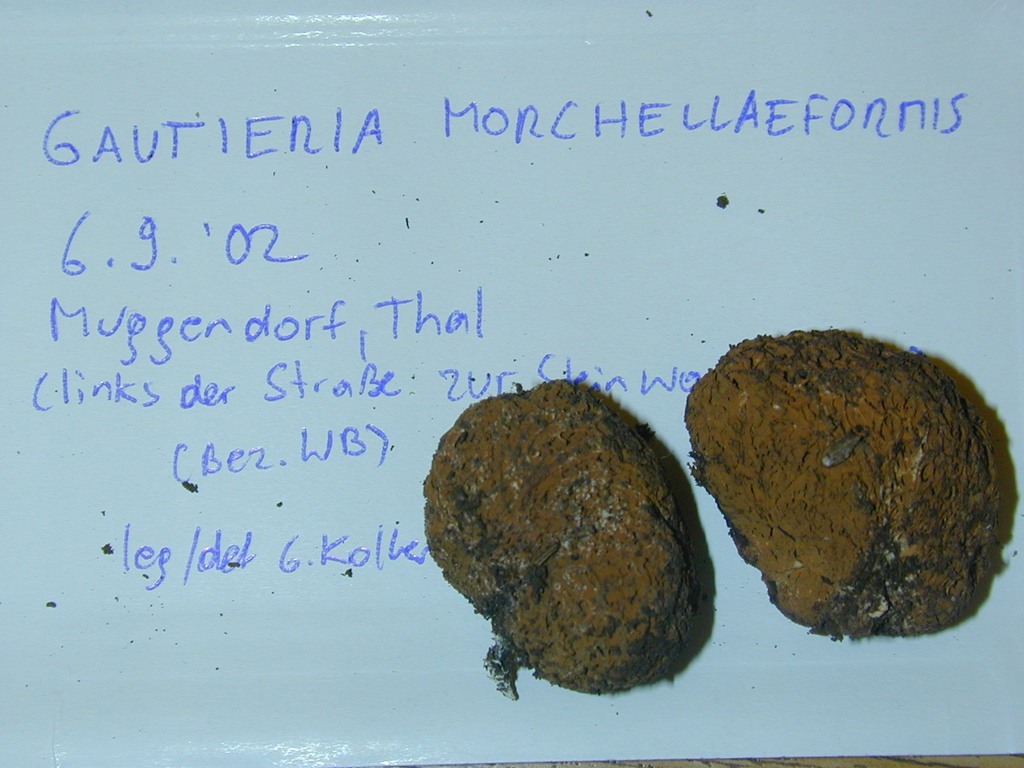 GAUTIERIA MORCHELLAEFORMIS
6.9. '02
Muggendorf, Thal
(links der Straße zur
(Bez. WB)
leg/det G. Koller